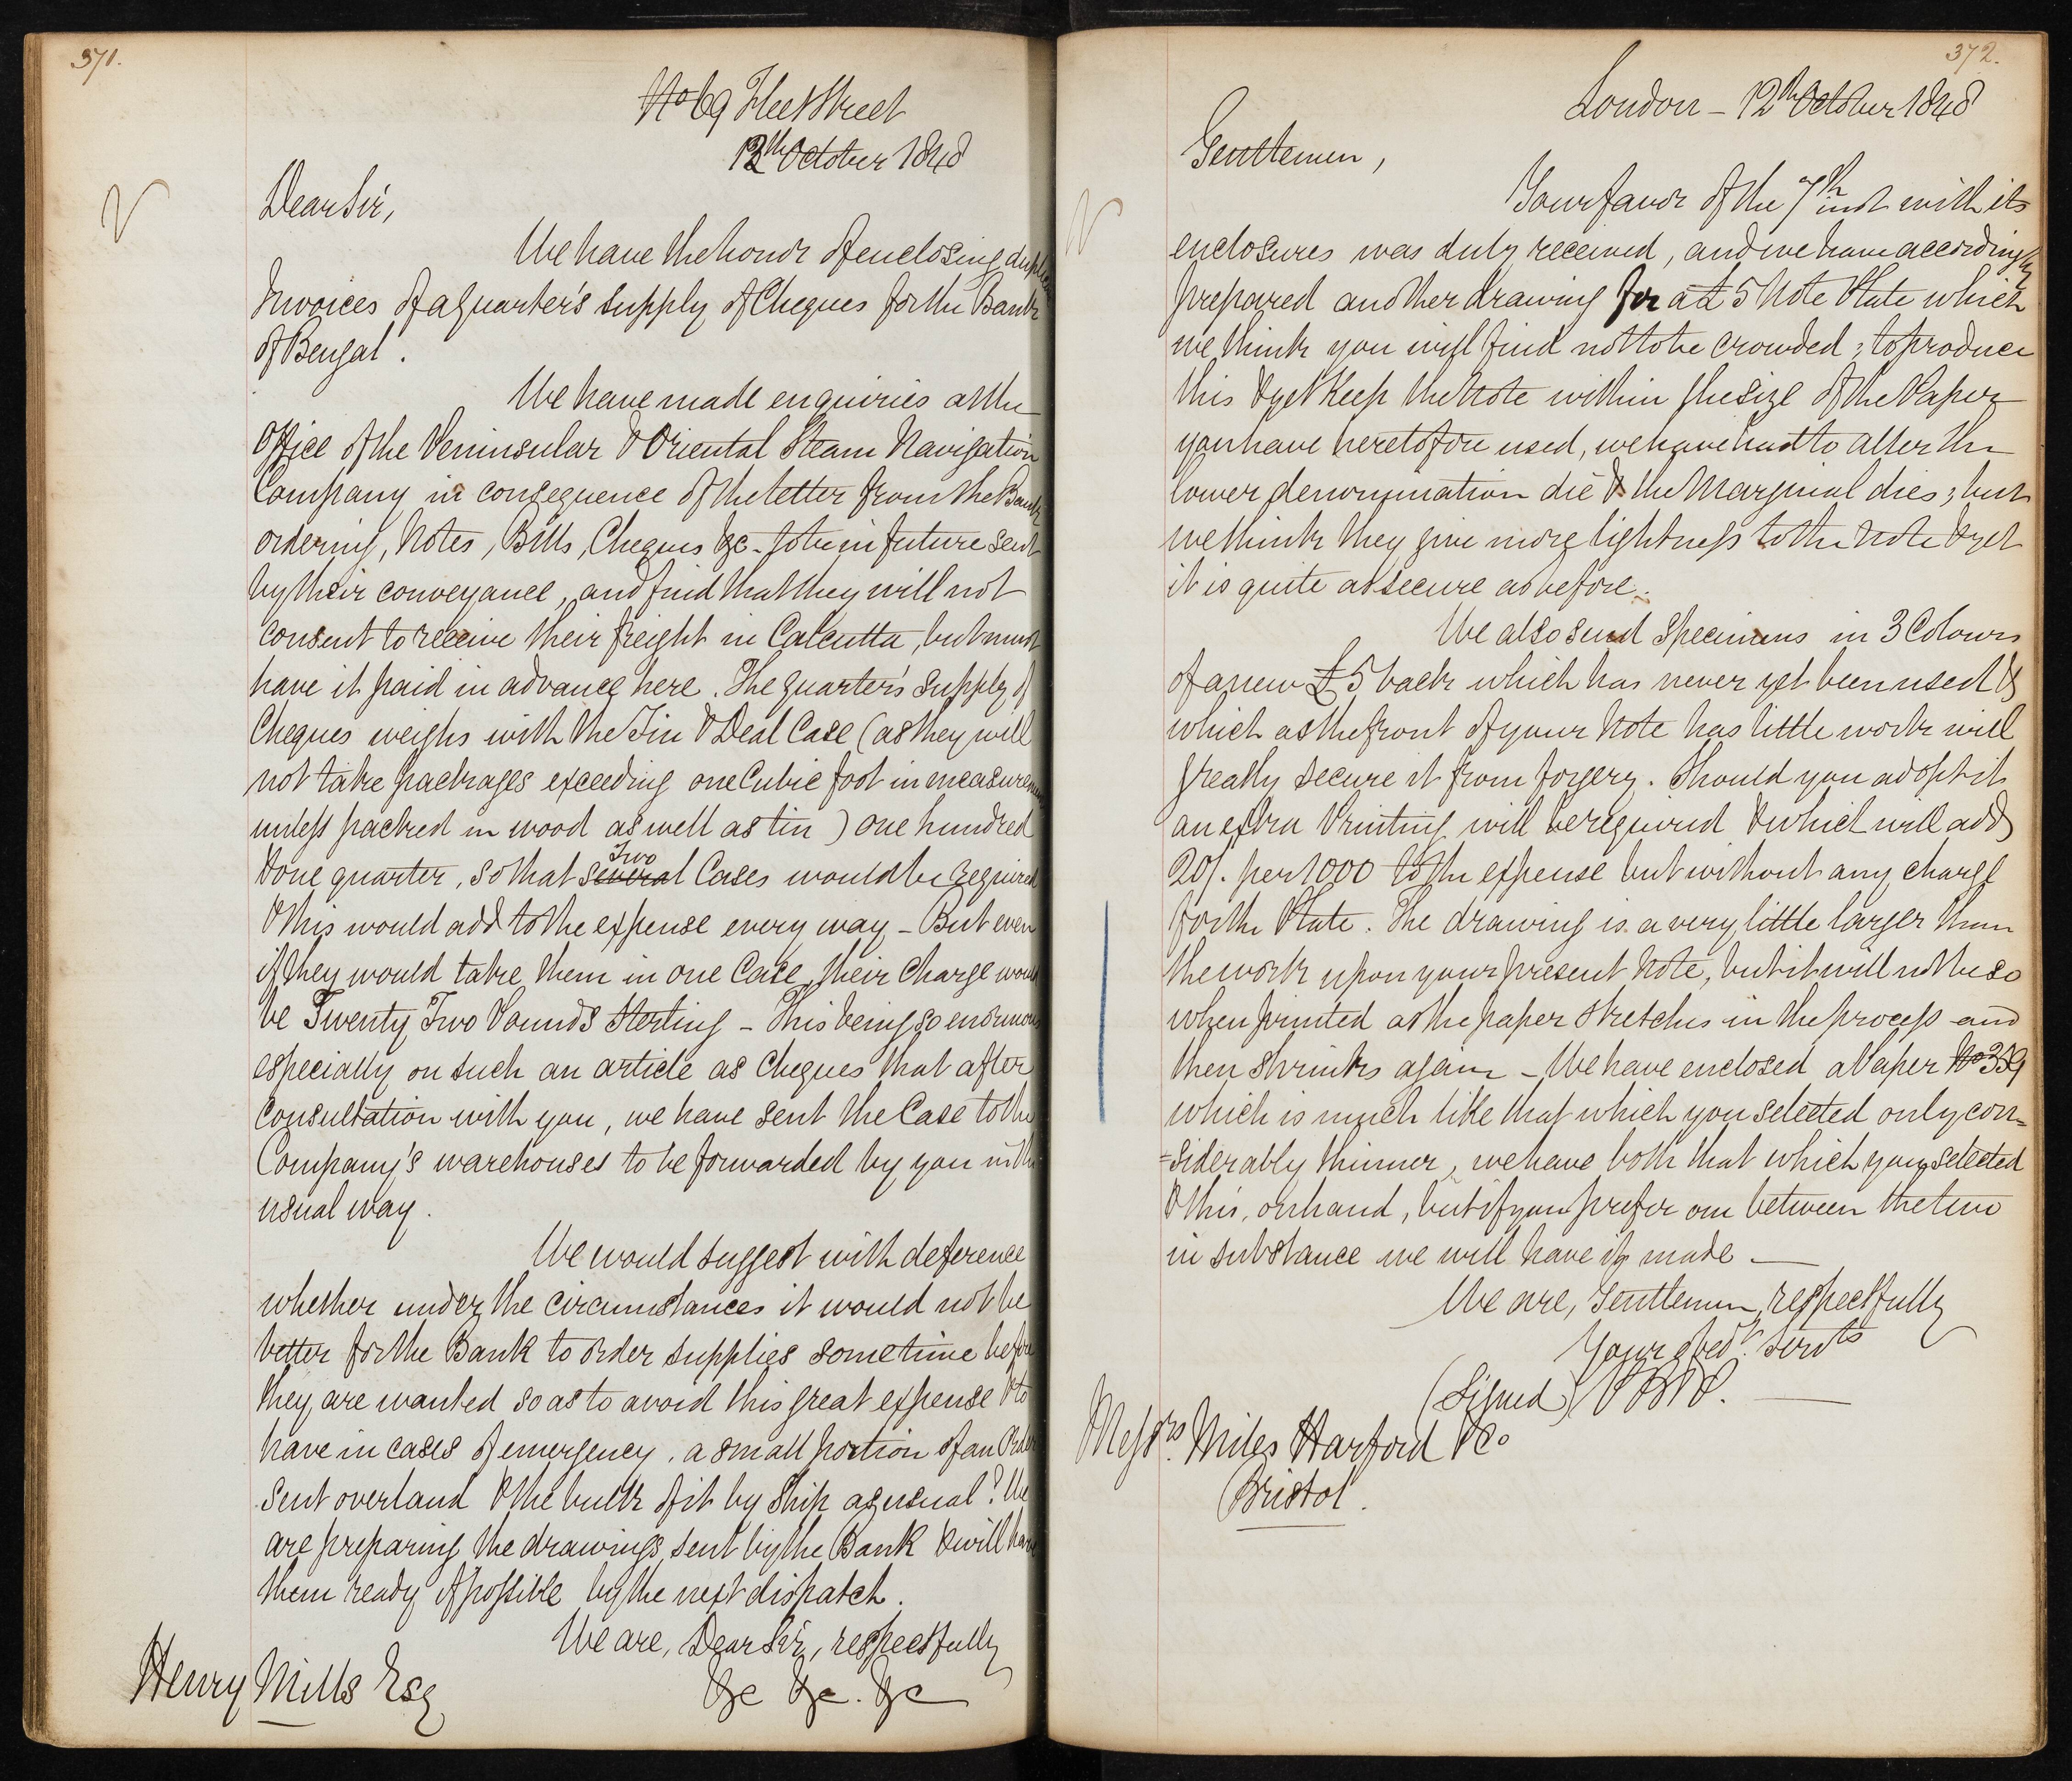 371.
No 69 Fleet Street
12th October 1848
Dear Sir,
We have the honor of enclosing duplicate
Invoices of a quarter's supply of Cheques for the Bank
of Bengal.
We have made enquiries at the
Office of the Peninsular & Oriental Steam Navigation
Company in consequence of the letter from the Bank
ordering, Notes, Bills, Cheques &c - to be in future sent
by their conveyance, and find that they will not
consent to receive their freight in Calcutta, but must
have it paid in advance here. The quarter's supply of
Cheques weighs with the Tin & Deal Case (as they will
not take packages exceeding one Cubic foot in measurement
unless packed in wood as well as tin) one hundred
Two
& one quarter, so that several Cases would be required
& this would add to the expense every way - But even
if they would take them in one Case, their charge would
be Twenty Two Pounds Sterling - This being so enormous
especially on such an article as Cheques that after
consultation with you, we have sent the Case to the
Company's warehouses to be forwarded by you in the
usual way.
We would suggest with deference
whether under the circumstances it would not be
better for the Bank to order supplies sometime before
they are wanted so as to avoid this great expense & to
have in cases of emergency, a small portion of an Order
sent overland & the bulk of it by Ship as usual? We
are preparing the drawings sent by the Bank & will have
them ready if possible by the next dispatch.
We are, Dear Sir, respectfully
&c &c. &c
Henry Mills Esq
372.
London - 12th October 1848
Gentlemen,
Your favor of the 7th inst with its
enclosures was duly received, and we have accordingly
prepared another drawing for a £5 Note Plate which
we think you will find not to be crowded; to produce
this & yet Keep the Note within the size of the Paper
you have heretofore used, we have had to alter the
lower denomination die & the Marginal dies; but
we think they give more lightness to the Note & yet
it is quite as secure as before.
We also send Specimens in 3 Colours
of a new £5 back which has never yet been used &
which as the front of your Note has little work will
greatly secure it from forgery. Should you adopt it
an extra Printing will be required & which will add
20/. per 1000 to the expense but without any charge
for the Plate. The drawing is a very little larger than
the work upon your present Note, but it will not be so
when printed as the paper stretches in the process and
then shrinks again - We have enclosed a Paper No 359
which is much like that which you selected only con=
=siderably thinner, we have both that which you selected
& this, on hand, but if you prefer one between the two
in substance we will have it made -
We are, Gentlemen, respectfully
Your obedt. servts
(Signed) PBP.
Messrs. Miles Harford & Co
Bristol.